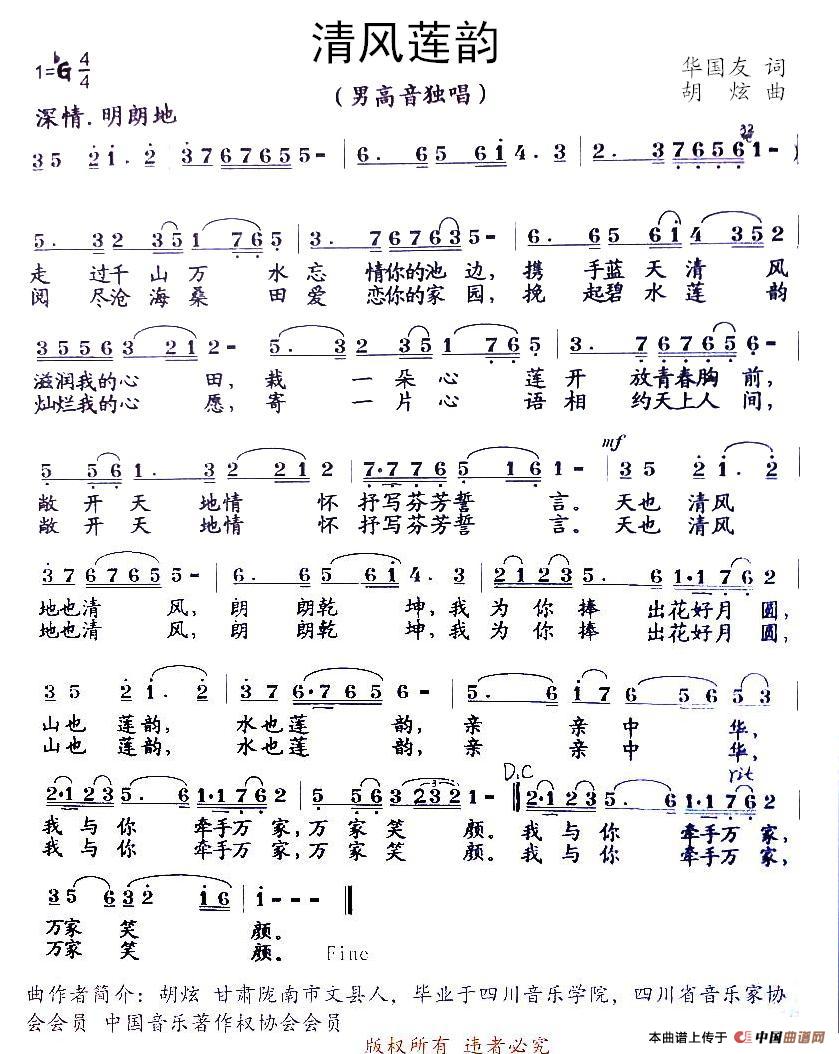 清风莲韵
1=♭G 4/4
（男高音独唱）
华国友 词
胡 炫 曲
深情.明朗地
走 过千 山 万 水 忘 情你的池 边， 携 手蓝 天 清 风
阅 尽沧 海 桑 田 爱 恋你的家 园， 挽 起碧 水 莲 韵
滋润我的心 田， 栽 一 朵 心 莲 开 放青春胸 前，
灿烂我的心 愿， 寄 一 片 心 语 相 约天上人 间，
mf
敞 开 天 地情 怀 抒写芬芳誓 言。 天也 清风
敞 开 天 地情 怀 抒写芬芳誓 言。 天也 清风
地也清 风， 朗 朗乾 坤，我 为 你 捧 出花好月 圆，
地也清 风， 朗 朗乾 坤，我 为 你 捧 出花好月 圆，
山也 莲韵， 水也莲 韵， 亲 亲 中 华，
山也 莲韵， 水也莲 韵， 亲 亲 中 华，
D.C rit
我 与 你 牵手万 家，万 家 笑 颜。我 与 你 牵手万 家，
我 与 你 牵手万 家，万 家 笑 颜。我 与 你 牵手万 家，
万家 笑 颜。
万家 笑 颜。 Fine
曲作者简介：胡炫 甘肃陇南市文县人，毕业于四川音乐学院，四川省音乐家协
会会员 中国音乐著作权协会会员
版权所有 违者必究
本曲谱上传于 中国曲谱网